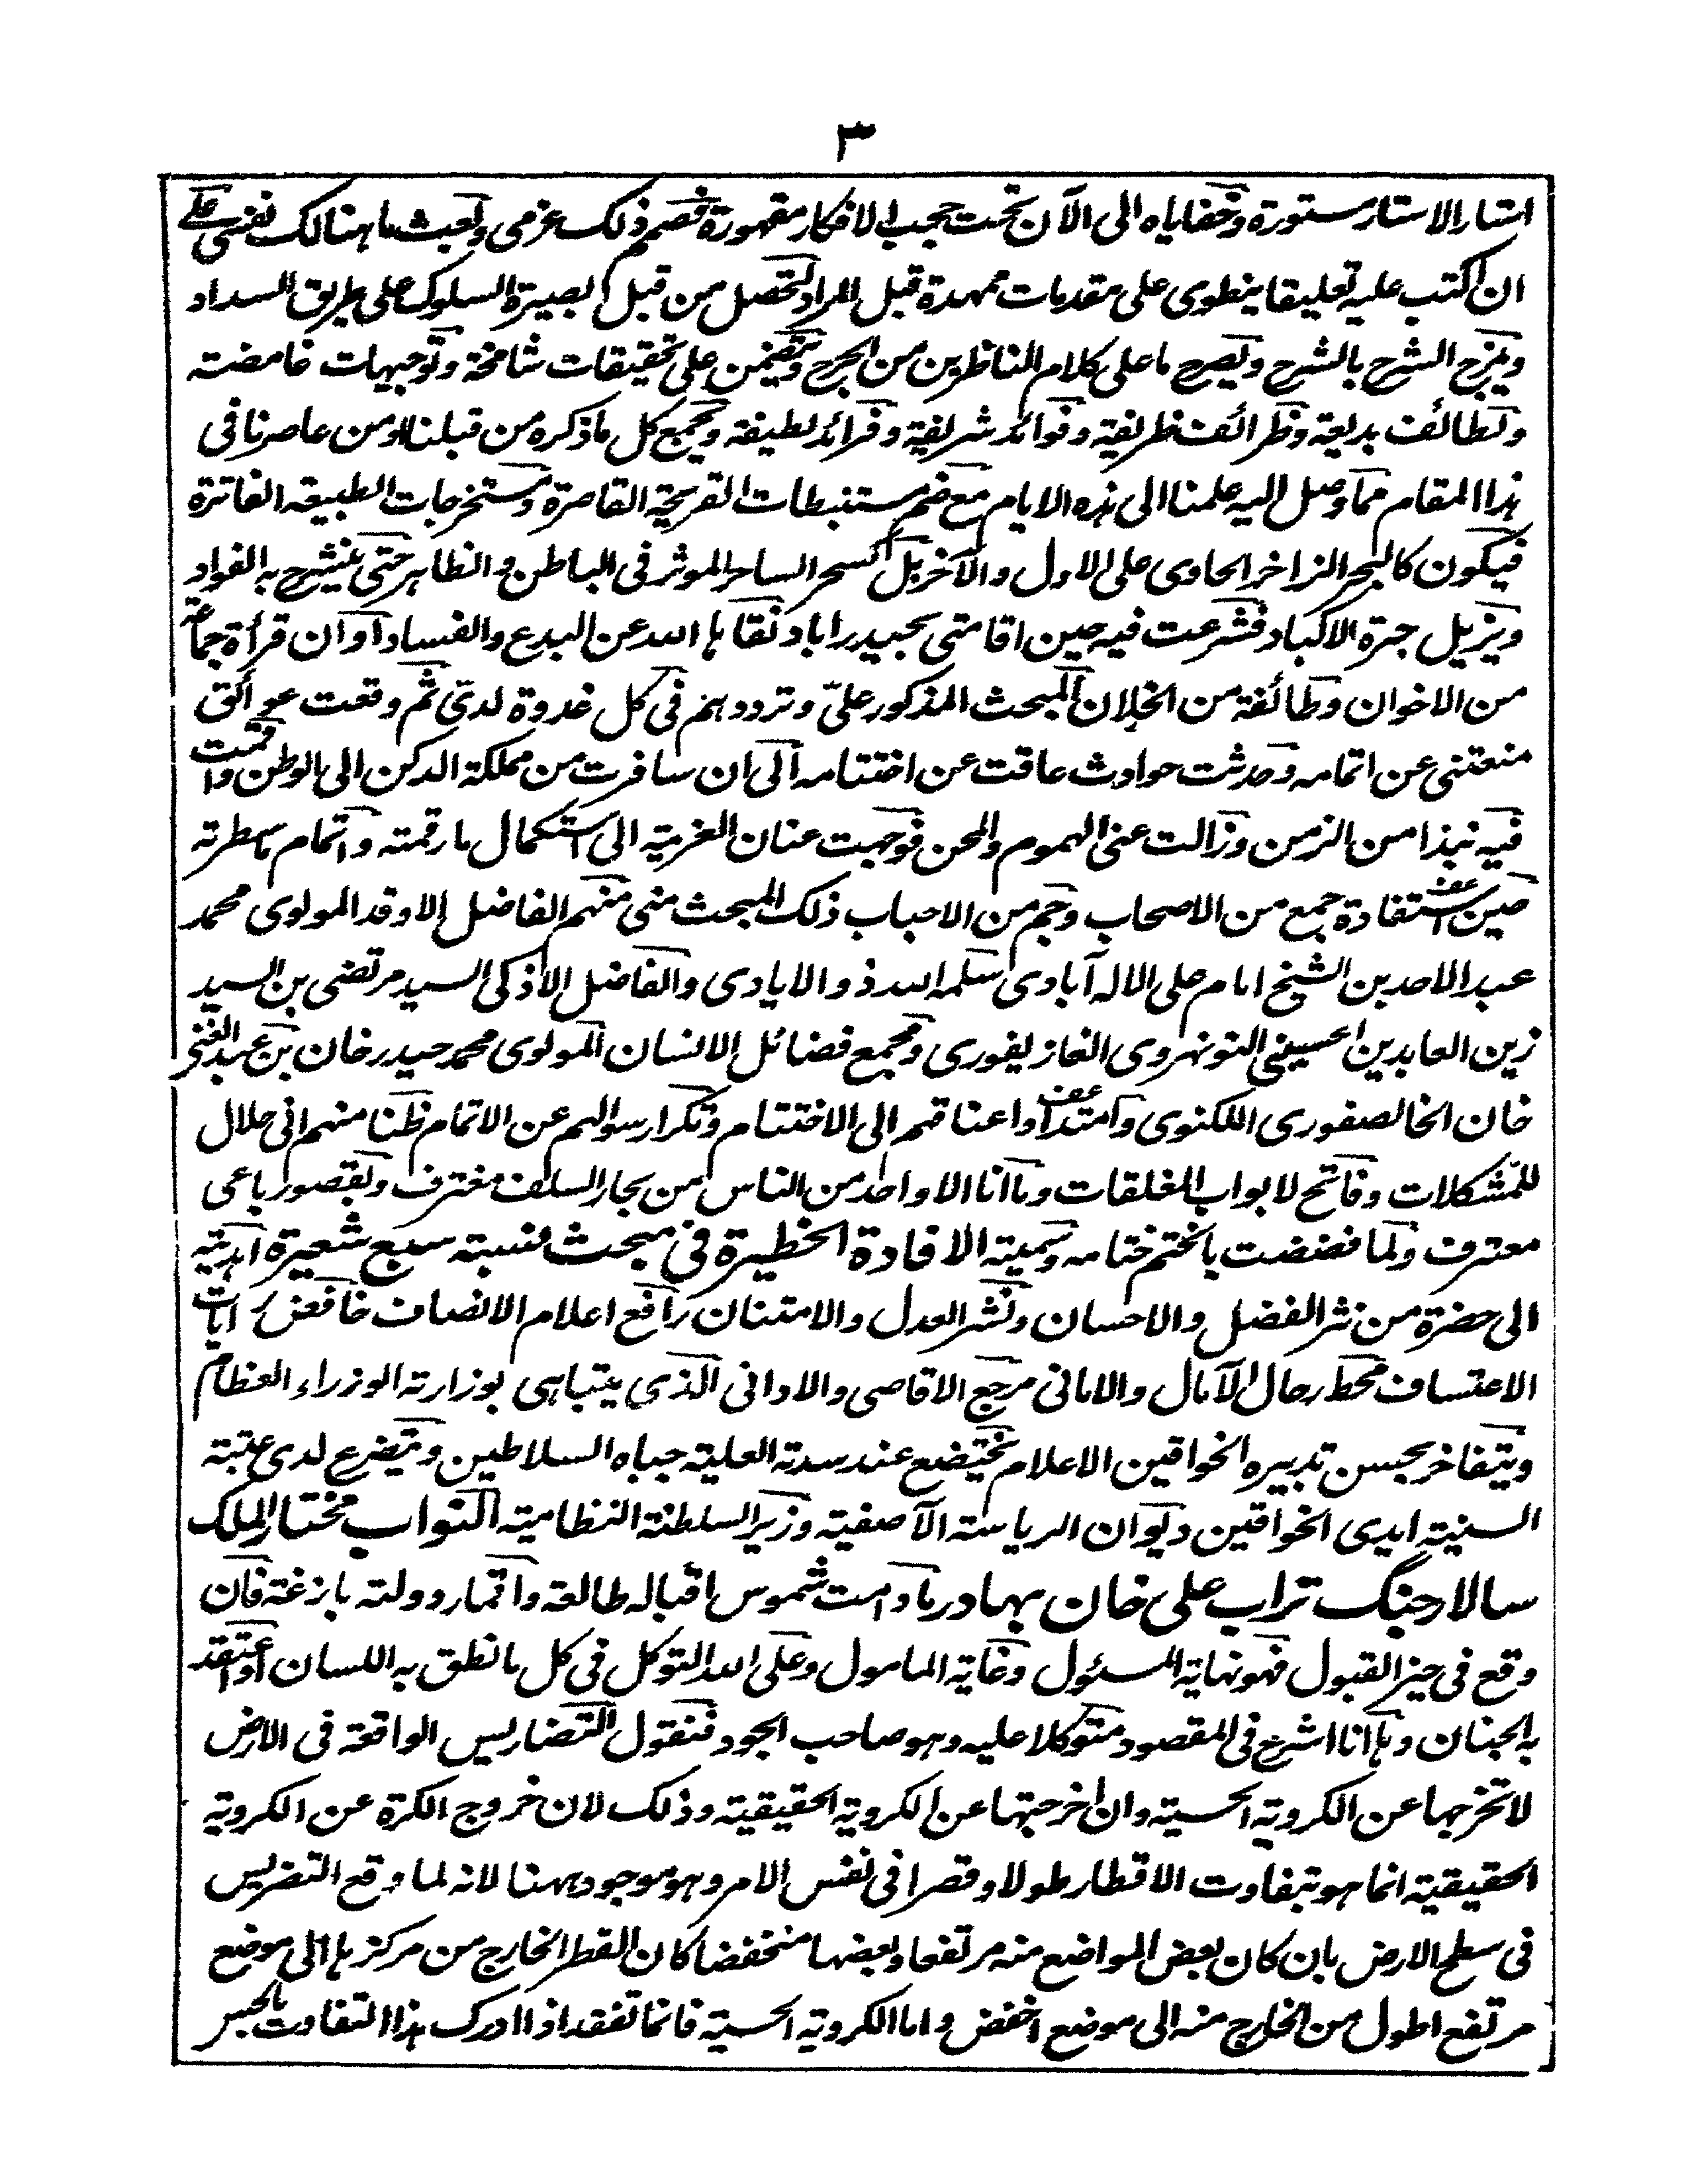 ٣
استار الاستار مستورة وخفاياه الى الآن تحت حجب الافكار مقهورة فصمم ذلك عزمى وبعث ما هنالك نفسى على
ان اكتب عليه تعليقا ينطوى على مقدمات ممهدة قبل المراد لتحصل من قبل البصيرة السلوك على طريق السداد
ويمزج الشرح بالشرح ويصرح ما على كلام الناظرين من الجرح ويتضمن على تحقيقات شامخة وتوجيهات غامضة
ولطائف بديعة وظرائف ظريفة وفوائد شريفة وفرائد لطيفة ويجمع كل ما ذكره من قبلنا او من عاصرنا فى
هذا المقام مما وصل اليه علمنا الى هذه الايام مع ضم مستنبطات القريحة القاصرة ومستخرجات الطبيعة الفاترة
فيكون كالبحر الزاخر الحاوى على الاول والآخر بل كالسحر الساحر الموثر فى الباطن والظاهر حتى ينشرح به الفواد
ويزيل حرة الاكباد فشرعت فيه حين اقامتى بحيدراباد نقاها الله عن البدع والفساد اوان قرأة جماعة
من الاخوان وطائفة من الخلان المبحث المذكور علىّ وترددهم فى كل غدوة لدىّ ثم وقعت عوائق
منعتنى عن اتمامه وحدثت حوادث عاقت عن اختتامه الى ان سافرت من مملكة الدكن الى الوطن واقمت
فيه نبذا من الزمن وزالت عنى الهموم والمحن فوجهت عنان العزيمة الى استكمال ما رقمته واتمام ما سطرته
حين استفادة جمع من الاصحاب وجم من الاحباب ذلك المبحث منى منهم الفاضل الاوقد المولوى محمد
عبد الاحد بن الشيخ امام على الاله آبادى سلمه الله ذو الايادى والفاضل الاذكى السيد مرتضى بن السيد
زين العابدين الحسينى النونهروى الغازيفورى ومجمع فضائل الانسان المولوى محمد حيدر خان بن عبد الغنى
خان الخالصفورى اللكنوى وامتداد اعناقهم الى الاختتام وتكرار سوالهم عن الاتمام ظنا منهم انى حلال
للمشكلات وفاتح لابواب المغلقات وما انا الا واحد من الناس من بحار السلف مغترف وبقصور باعى
معترف ولما فضضت بالختم ختامه وسميته الافادة الخطيرة فى مبحث نسبة سبع شعيرة اهديته
الى حضرة من نثر الفضل والاحسان ونشر العدل والامتنان رافع اعلام الانصاف خافض رايات
الاعتساف محط رحال الآمال والامانى مرجع الاقاصى والادانى الذى يتباهى بوزارته الوزراء العظام
ويتفاخر بحسن تدبيره الخواقين الاعلام يختضع عند سدته العلية جباه السلاطين ويتضرع لدى عتبة
السنية ايدى الخواقين ديوان الرياسة الآصفية وزير السلطنة النظامية النواب مختار الملك
سالار جنگ تراب على خان بهادر ما دامت شموس اقباله طالعة واقمار دولته بازغة فان
وقع فى حيز القبول فهو نهاية المسئول وغاية المامول وعلى الله التوكل فى كل ما نطق به اللسان او اعتقد
به الجنان وها انا اشرع فى المقصود متوكلا عليه وهو صاحب الجود فنقول التضاريس الواقعة فى الارض
لا تخرجها عن الكروية الحسية وان اخرجتها عن الكروية الحقيقية وذلك لان خروج الكرة عن الكروية
الحقيقية انما هو بتفاوت الاقطار طولا وقصرا فى نفس الامر وهو موجود ههنا لانه لما وقع التضريس
فى سطح الارض بان كان بعض المواضع منه مرتفعا وبعضها منخفضا كان القطر الخارج من مركزها الى موضع
مرتفع اطول من الخارج منه الى موضع اخفض واما الكروية الحسية فانما تفقد اذا ادرك هذا التفاوت بالحس